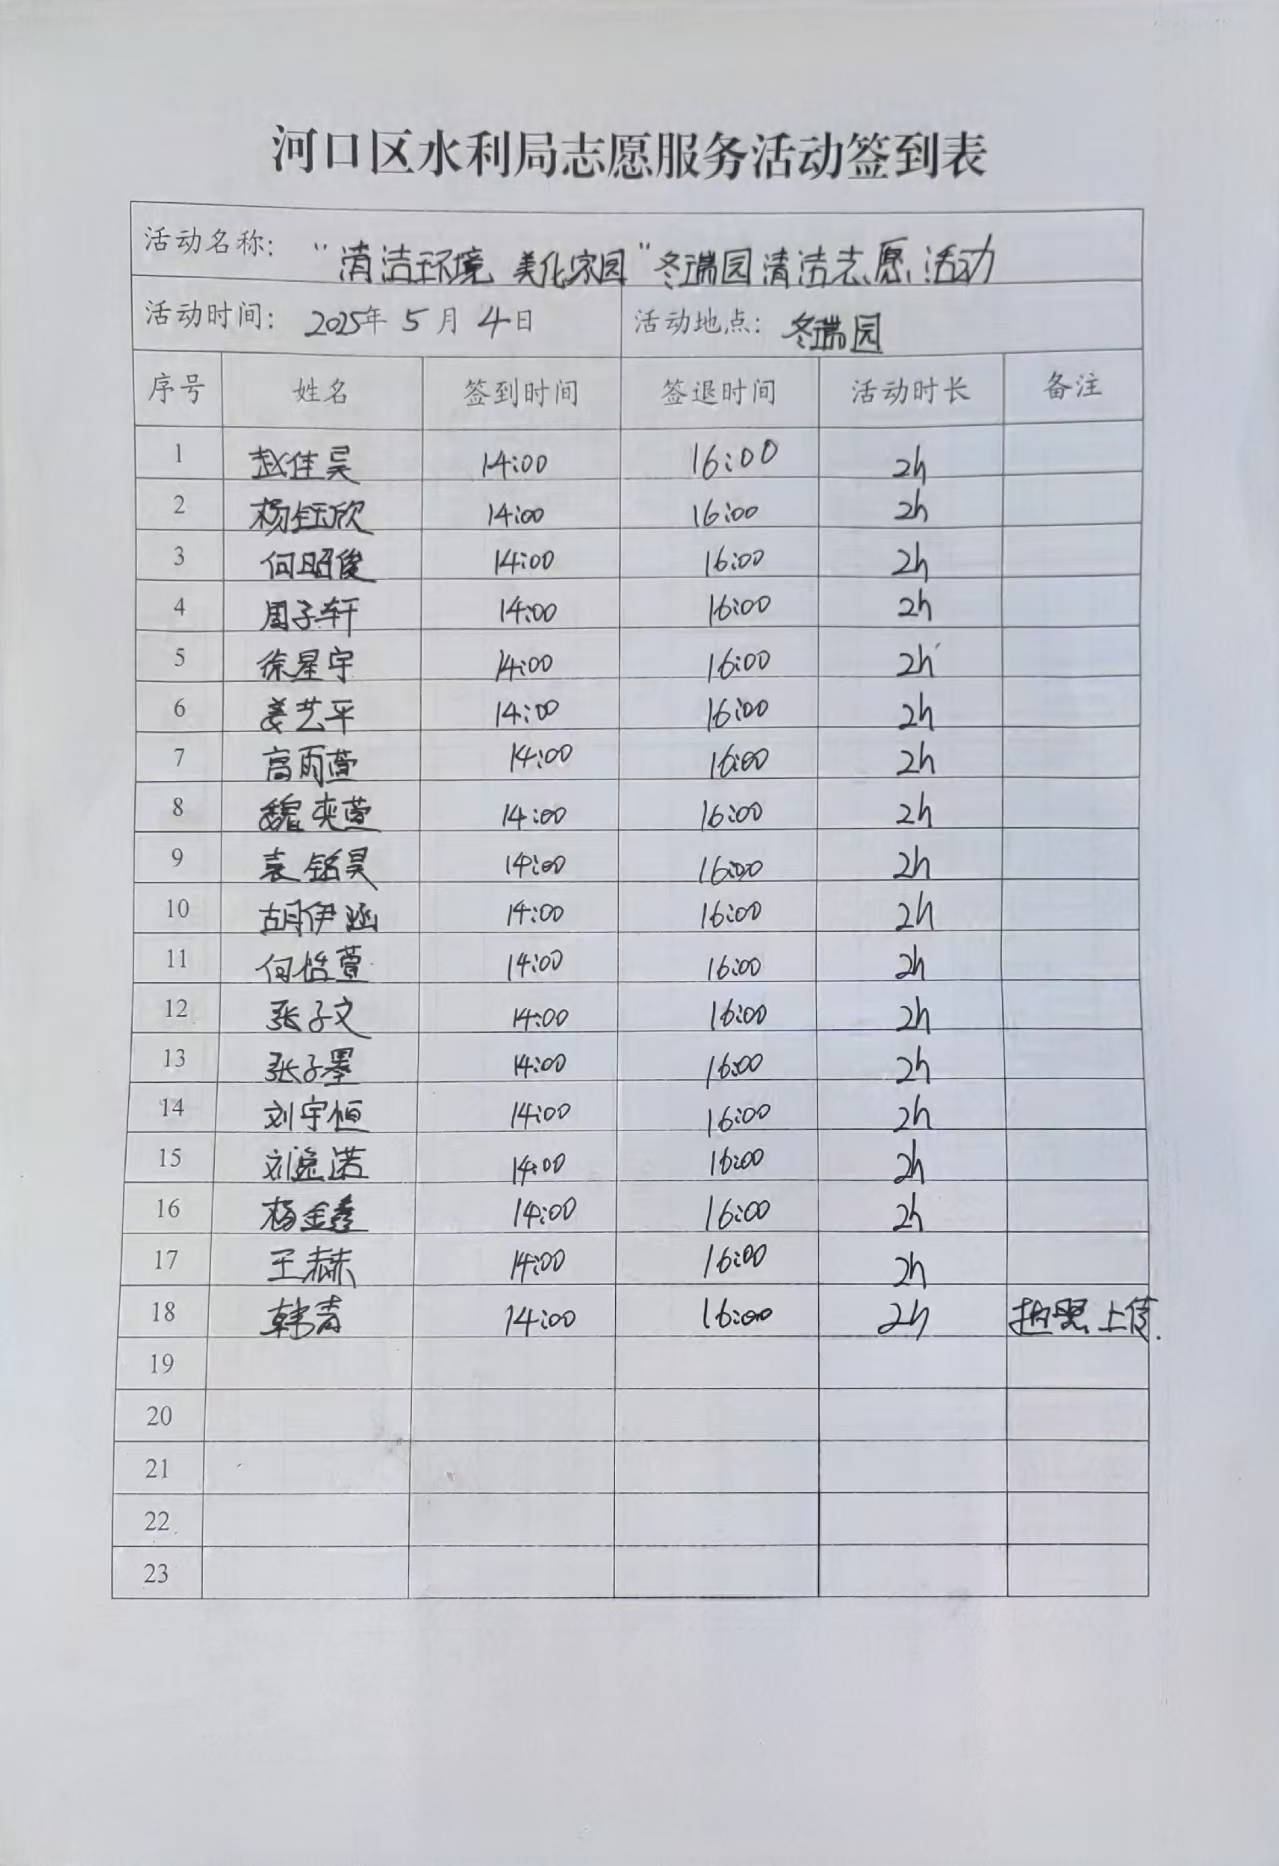 河口区水利局志愿服务活动签到表
活动名称："清洁环境 美化家园"冬瑞园清洁志愿活动
活动时间：2025年5月4日 活动地点：冬瑞园
序号 姓名 签到时间 签退时间 活动时长 备注
1 赵佳昊 14:00 16:00 2h
2 杨钰欣 14:00 16:00 2h
3 何昭俊 14:00 16:00 2h
4 周子轩 14:00 16:00 2h
5 徐星宇 14:00 16:00 2h
6 姜艺平 14:00 16:00 2h
7 高雨萱 14:00 16:00 2h
8 魏奕萱 14:00 16:00 2h
9 袁铭昊 14:00 16:00 2h
10 胡伊涵 14:00 16:00 2h
11 何怡萱 14:00 16:00 2h
12 张子文 14:00 16:00 2h
13 张子墨 14:00 16:00 2h
14 刘宇恒 14:00 16:00 2h
15 刘逸诺 14:00 16:00 2h
16 杨金鑫 14:00 16:00 2h
17 王赫 14:00 16:00 2h
18 韩青 14:00 16:00 2h 拍照上传.
19
20
21
22
23